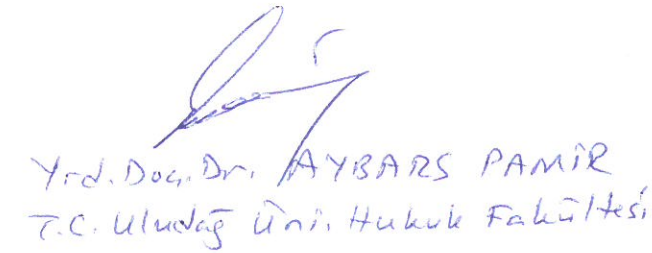 Yrd. Doç. Dr. AYBARS PAMİR
T.C. Uludağ Üni. Hukuk Fakültesi